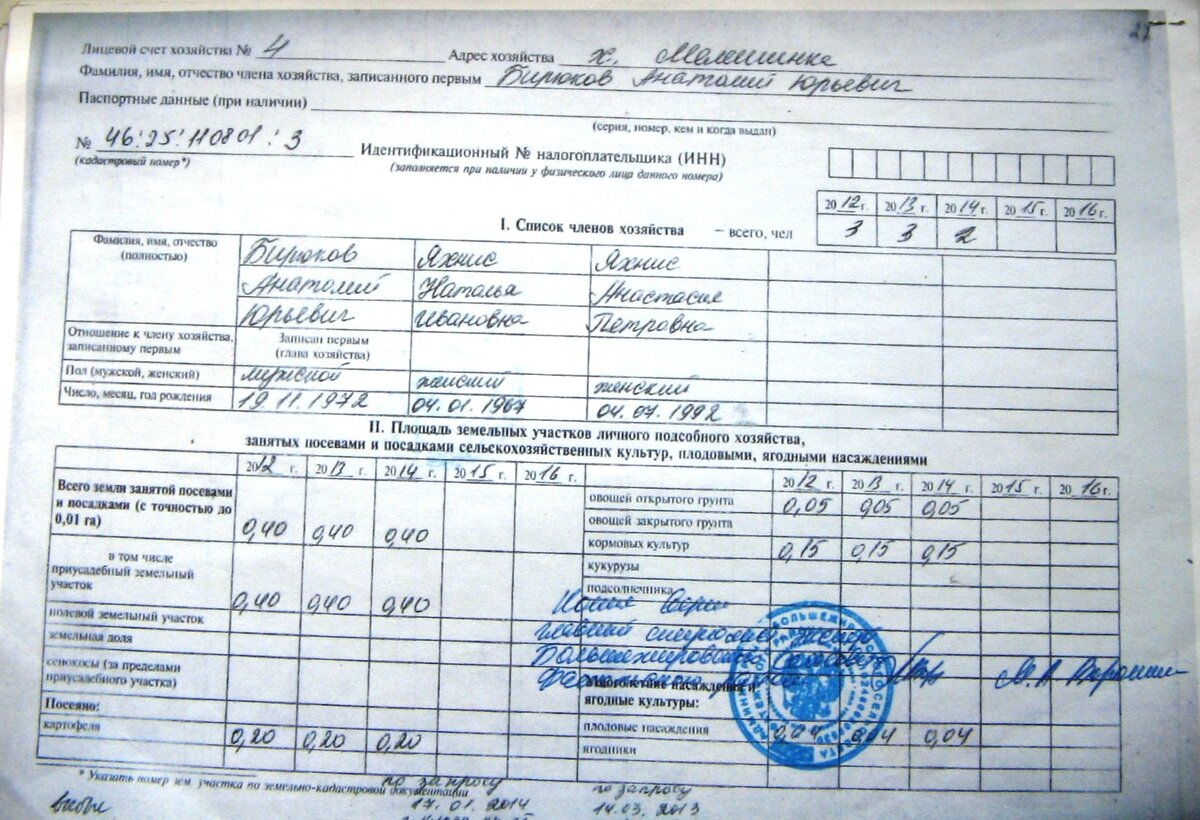 25
Лицевой счет хозяйства № 4 Адрес хозяйства х.
Фамилия, имя, отчество члена хозяйства, записанного первым Бирюков Анатолий Юрьевич
Паспортные данные (при наличии)
(серия, номер, кем и когда выдан)
№ 46:25:110801:3
(кадастровый номер*)
Идентификационный № налогоплательщика (ИНН)
(заполняется при наличии у физического лица данного номера)
2012 г. 2013 г. 2014 г. 2015 г. 2016 г.
I. Список членов хозяйства – всего, чел 3 3 2
Фамилия, имя, отчество Бирюков Яхнис Яхнис
(полностью) Анатолий Наталья Анастасия
Юрьевич Ивановна Петровна
Отношение к члену хозяйства, Записан первым
записанному первым (глава хозяйства)
Пол (мужской, женский) мужской женский женский
Число, месяц, год рождения 19.11.1972 04.01.1967 04.07.1992
II. Площадь земельных участков личного подсобного хозяйства,
занятых посевами и посадками сельскохозяйственных культур, плодовыми, ягодными насаждениями
2012 г. 2013 г. 2014 г. 2015 г. 2016 г.
Всего земли занятой посевами
и посадками (с точностью до
0,01 га) 0,40 0,40 0,40
в том числе
приусадебный земельный
участок 0,40 0,40 0,40
полевой земельный участок
земельная доля
сенокосы (за пределами
приусадебного участка)
Посеяно:
картофеля 0,20 0,20 0,20
2012 г. 2013 г. 2014 г. 2015 г. 2016 г.
овощей открытого грунта 0,05 0,05 0,05
овощей закрытого грунта
кормовых культур 0,15 0,15 0,15
кукурузы
подсолнечника
Копия верна
главный специалист-эксперт
Большежировского сельсовета
Фатежского района
многолетние насаждения и
ягодные культуры:
плодовые насаждения 0,04 0,04 0,04
ягодники
* Указать номер зем. участка по земельно-кадастровой документации
по запросу
17.01.2014
по запросу
14.03.2013